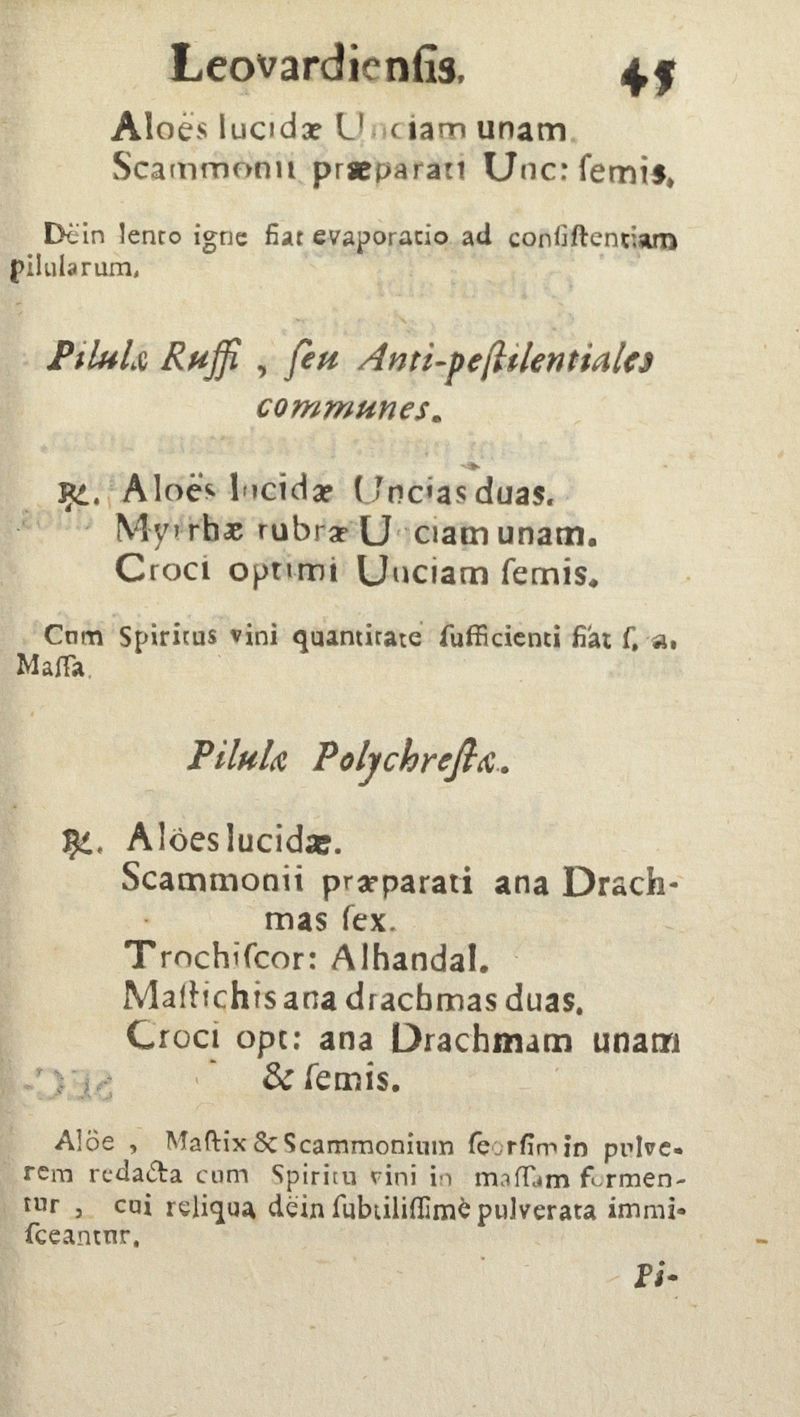 Leovardienſis. 45
Aloës lucidæ Unciam unam.
Scammonii præparati Unc: ſemis.
Dein lento igne fiat evaporatio ad conſiſtentiam
pilularum.
Pilulæ Ruffi , ſeu Anti-peſtilentiales
communes.
℞. Aloës lucidæ Uncias duas.
Myrrhæ rubræ Unciam unam.
Croci optimi Unciam ſemis.
Cum Spiritus vini quantitate ſufficienti fiat ſ. a.
Maſſa.
Pilulæ Polychreſtæ.
℞. Alöes lucidæ.
Scammonii præparati ana Drach-
mas ſex.
Trochiſcor: Alhandal.
Maſtichis ana drachmas duas.
Croci opt: ana Drachmam unam
& ſemis.
Alöe , Maſtix & Scammonium ſeorſim in pulve-
rem redacta cum Spiritu vini in maſſam formen-
tur , cui reliqua dëin ſubtiliſſimè pulverata immi-
ſceantur.
Pi-